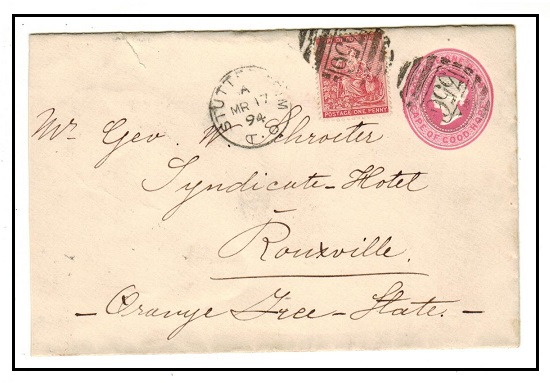 STUTTERHEIM
A
MR 17
94
POSTAGE ONE PENNY
CAPE OF GOOD HOPE
Mr. Geo. W. Schroeter
Syndicate-Hotel
Rouxville.
— Orange Free-State. —